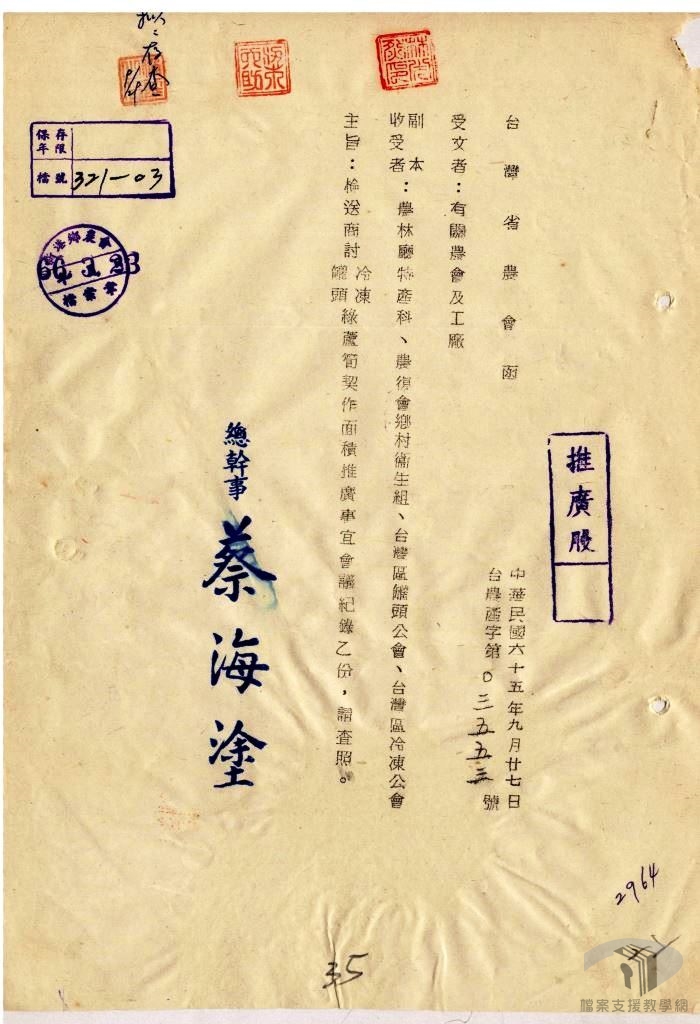 台灣省農會函
受文者：有關農會及工廠
副本收受者：農林廳特產科、農復會鄉村衛生組、台灣區罐頭公會、台灣區冷凍公會
主旨：檢送商討冷凍罐頭綠蘆筍契作面積推廣事宜會議紀錄乙份，請查照。
中華民國六十五年九月廿七日
台農產字第〇三五五三號
推廣股
總幹事 蔡海塗
保存年限
檔號 321-03
2964
35
檔案支援教學網